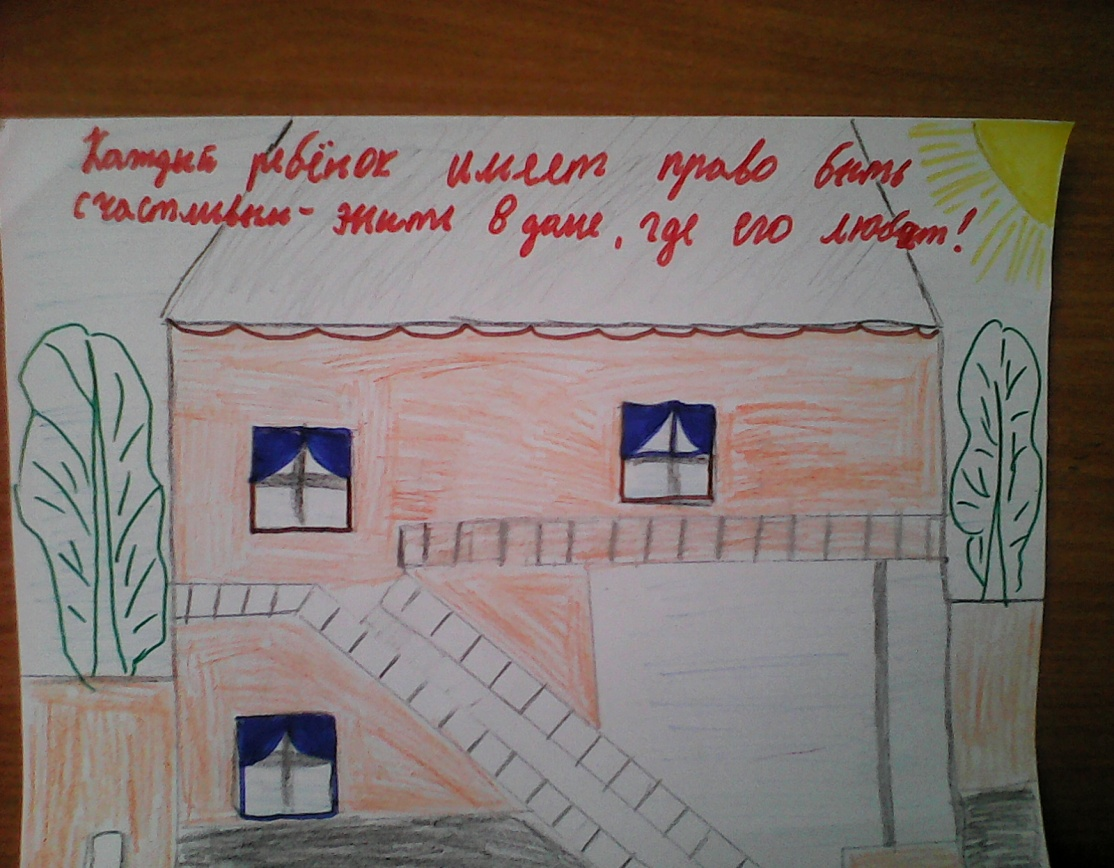 Каждый ребёнок имеет право быть
счастливым- жить в доме, где его любят!